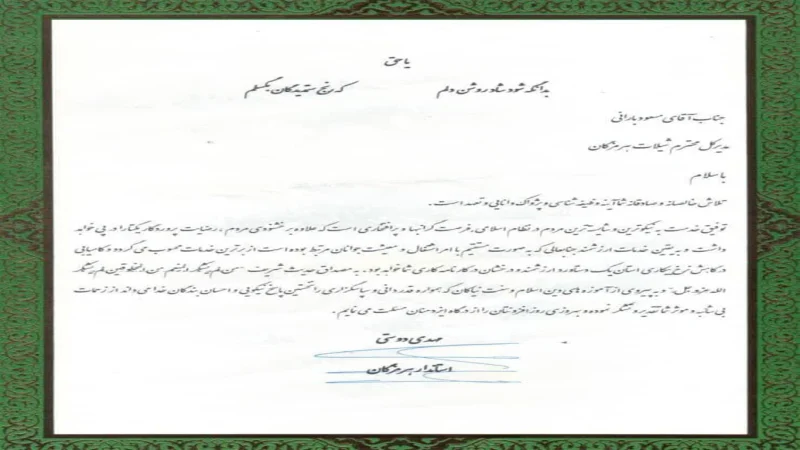 یا حق
بدانگه شود شاد و روشن دلم که رنج ستمدیدگان بگسلم
جناب آقای مسعود بارانی
مدیرکل محترم شیلات هرمزگان
با سلام
تلاش خالصانه و صادقانه شما آینه وظیفه شناسی و پژواک دانایی و تعهد است.
توفیق خدمت به نیکوترین و شایسته‌ترین مردم در نظام اسلامی، فرصت گرانبها و پر افتخاری است که علاوه بر خشنودی مردم، رضایت پروردگار یکتا را در پی خواهد
داشت و بی‌یقین خدمات ارزشمند جنابعالی که به صورت مستقیم با امر اشتغال و معیشت جوانان مرتبط بوده است از برترین خدمات محسوب می گردد و کامیابی
در کاهش نرخ بیکاری استان یک دستاورد ارزشمند و درخشان در کارنامه کاری شما خواهد بود. به مصداق حدیث شریف من لم یشکر المنعم من المخلوقین لم یشکر
الله عزوجل، و به پیروی از آموزه های دین اسلام و سنت نیاکان که همواره قدردانی و سپاسگزاری را نخستین پاسخ نیکویی و احسان بندگان خدا می داند از زحمات
بی شائبه و موثر شما تقدیر و تشکر نموده و بهروزی روزافزونتان را از درگاه ایزد منان مسئلت می نمایم.
مهدی دوستی
استاندار هرمزگان